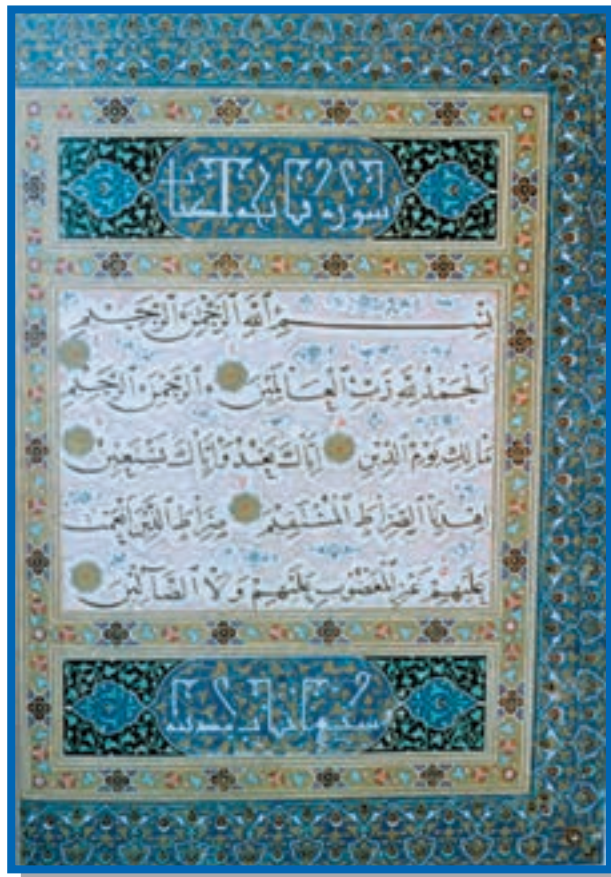 سورة فاتحة الكتاب
بِسْمِ ٱللَّهِ ٱلرَّحْمَٰنِ ٱلرَّحِيمِ
اَلْحَمْدُ لِلَّهِ رَبِّ ٱلْعَالَمِينَ ٱلرَّحْمَٰنِ ٱلرَّحِيمِ
مَالِكِ يَوْمِ ٱلدِّينِ اِيَّاكَ نَعْبُدُ وَاِيَّاكَ نَسْتَعِينُ
اِهْدِنَا ٱلصِّرَاطَ ٱلْمُسْتَقِيمَ صِرَاطَ ٱلَّذِينَ اَنْعَمْتَ
عَلَيْهِمْ غَيْرِ ٱلْمَغْضُوبِ عَلَيْهِمْ وَلَا ٱلضَّآلِّينَ
سبع ايات